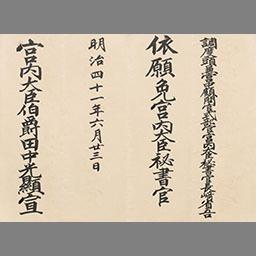 調度頭兼宮中顧問官式部官宮内大臣秘書官長崎省吾
依願免宮内大臣秘書官
明治四十一年六月廿三日
宮内大臣伯爵田中光顯宣